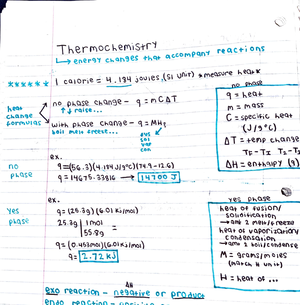 Thermochemistry
↳ energy changes that accompany reactions
****** 1 calorie = 4.184 joules (SI unit) *measure heat*
heat change formulas
no phase change - q = mCΔT
↑↓ raise...
with phase change - q = MHf
boil melt freeze...
fus
sol
vap
con
no phase
q = heat
m = mass
C = specific heat
(J/g°C)
ΔT = temp change
ΔH = enthalpy (q)
ex.
no phase
q=(56.3)(4.184 J/g°C)(74.9-12.6)
q = 14675.33816 → 14700 J
ex.
yes phase
q= (25.3g) (6.01 KJ/mol)
25.3g | 1mol
55.8g
q= (0.453mol)(6.01KJ/mol)
q= 2.72 KJ
yes phase
heat of fusion/
solidification
→ are 2 melt/freeze
heat of vaporization/
condensation
→ are 2 boil/condense
M = grams/moles
(match H unit)
H = heat of ...
ΔH
exo reaction - negative or product
endo reaction -